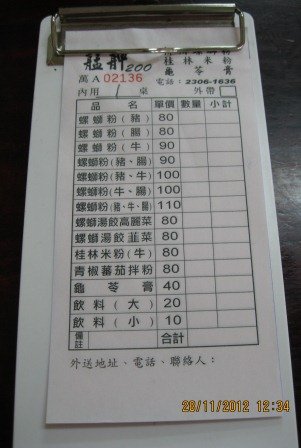 艋舺200
桂林米粉
龜苓膏
萬A 02136
電話：2306-1636
內用 1 桌 外帶
品名 單價 數量 小計
螺螄粉(豬) 80
螺螄粉(腸) 80
螺螄粉(牛) 90
螺螄粉(豬、腸) 90
螺螄粉(豬、牛) 100
螺螄粉(牛、腸) 100
螺螄粉(豬、牛、腸) 110
螺螄湯餃高麗菜 80
螺螄湯餃韮菜 80
桂林米粉(牛) 80
青椒蕃茄拌粉 80
龜苓膏 40
飲料(大) 20
飲料(小) 10
備註 合計
外送地址、電話、聯絡人：
28/11/2012 12:34